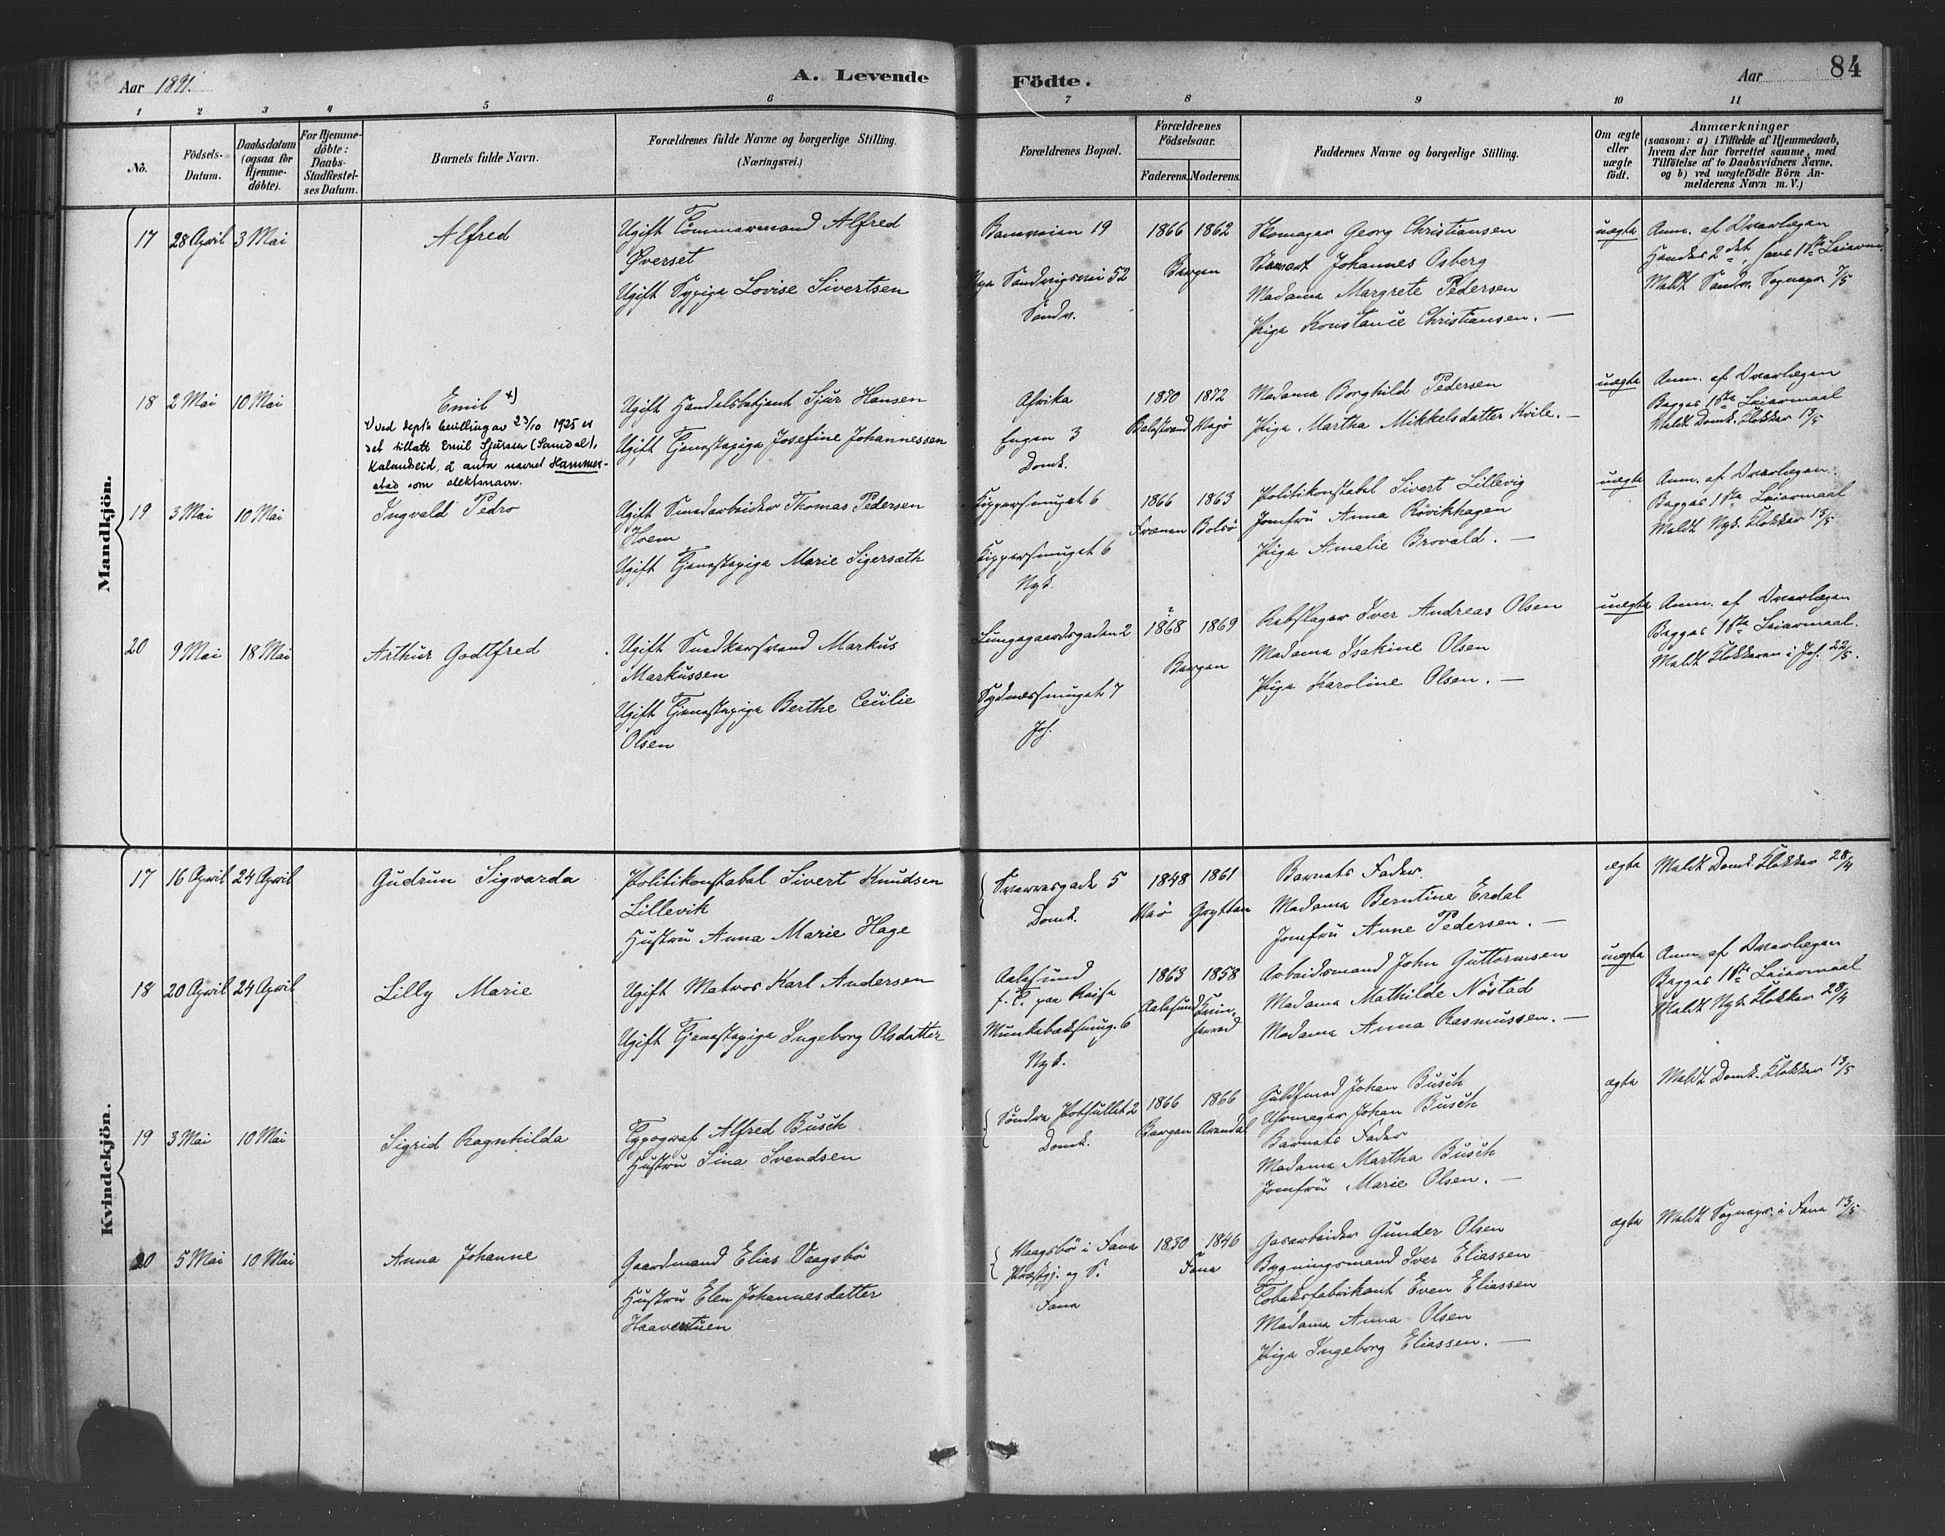 Aar 1891.
A. Levende
Födte.
Aar
84
1 2 3 4 5 6 7 8 9 10 11
No.
Födsels-
Datum.
Daabsdatum
(ogsaa for
Hjemme-
döbte).
For Hjemme-
döbte:
Daabs-
Stadfæstel-
ses Datum.
Barnets fulde Navn.
Forældrenes fulde Navne og borgerlige Stilling.
(Næringsvei.)
Forældrenes Bopæl.
Forældrenes
Födselsaar.
Faderens. Moderens.
Faddernes Navne og borgerlige Stilling.
Om ægte
eller
uægte
födt.
Anmærkninger
(saasom: a) i Tilfælde af Hjemmedaab,
hvem der har forrettet samme, med
Tilföielse af to Daabsvidners Navne.
og b) ved uægtefödte Börn An-
melderens Navn m. V.)
Mandkjön.
17 28 April 3 Mai
Alfred
Ugift Tömmermand Alfred
Øverset
Ugift Sypige Lovise Sivertsen
19
Nye Sandvigsvei 52
Sandv.
1866 1862
Bergen
Skomager Georg Christiansen
Johannes Osberg
Madame Margrete Pedersen
Pige Konstance Christiansen. —
uægte
Anm. af Overlægen
Handes 2det, hans 1ste Leierm.
Meldt Sandv. Sogneper 7/5
18 2 Mai 10 Mai
Emil x)
x) ved dept's bevilling av 23/10 1925 er
det tillatt Emil Sjursen (Samdal),
Kalandseid, å anta navnet Hammer-
stad som slektsnavn.
Ugift Handelsbetjent Sjur Hansen
Ugift Tjenestepige Josefine Johannessen
Afrika
Engen 3
Domk.
1870 1872
Balestrand Magø
Madame Borghild Pedersen
Pige Martha Mikkelsdatter Kvile. —
uægte
Anm. af Overlægen
Begges 1ste Leiermaal
Meldt Domk. Klokker 13/5
19 3 Mai 10 Mai
Ingvald Pedro
Ugift Smedarbeider Thomas Pedersen
Hoem
Ugift Tjenestepige Marie Sigerseth
Kippersmuget 6
Kippersmuget 6
Nyk.
1866 1863
Frænen Bolsö
Politikonstabel Sivert Lillevig
Jomfru Anna Rövikhagen
Pige Amalie Brovald. —
uægte
Anm. af Overlægen.
Begges 1ste Leiermaal
Meldt Nyk. Klokker 13/5
20 9 Mai 18 Mai
Arthur Godtfred
Ugift Snedkersvend Markus
Markussen
Ugift Tjenestepige Berthe Cecilie
Olsen
Lungegaardsgaden 2
Sydnessmuget 7
Joh.
1868 1869
Bergen
Rebslager Iver Andreas Olsen
Madame Isakine Olsen
Pige Karoline Olsen. —
uægte
Anm. af Overlægen
Begges 1ste Leiermaal.
Meldt Klokkeren i Joh. 22/5.
Kvindekjön.
17 16 April 24 April
Gudrun Sigvarda
Politikonstabel Sivert Knudsen
Lillevik
Hustru Anna Marie Hage
Sverresgade 5
Domk.
1848 1861
Grytten
Barnets Fader.
Madame Berntine Erdal
Jomfru Anne Pedersen. —
ægte
Meldt Domk. Klokker 28/4
18 20 April 24 April
Lilly Marie
Ugift Matros Karl Andersen
Ugift Tjenestepige Ingeborg Olsdatter
Aalesund
f. T. paa Reise
Munkebæksmug. 6
Nyk.
1863 1858
Aalesund Kvin-
herred
Arbeidsmand John Guttormsen
Madame Mathilde Nöstad
Madame Anna Rasmussen. —
uægte
Anm. af Overlægen
Begges 1ste Leiermaal
Meldt Nyk. Klokker 28/4
19 3 Mai 10 Mai
Sigrid Ragnhilda
Typograf Alfred Busch
Hustru Sina Svendsen
Söndre 2
Domk.
1866 1866
Bergen Arendal
Guldsmed Johan Busch
Urmager Johan Busch
Barnets Fader
Madame Martha Busch
Jomfru Marie Olsen. —
ægte
Meldt Domk. Klokker 13/5
20 5 Mai 10 Mai
Anna Johanne
Gaardmand Elias Vaagsbö
Hustru Elen Johannesdatter
Haavertuen
Vaagsbö i Fana
Præstgj. og S.
Fana
1830 1846
Fana
Gasarbeider Gunder Olsen
Bygningsmand Iver Eliassen
Tobaksfabrikant Even Eliassen
Madame Anna Olsen
Pige Ingeborg Eliassen. —
ægte
Meldt Sognepr. i Fana 13/5